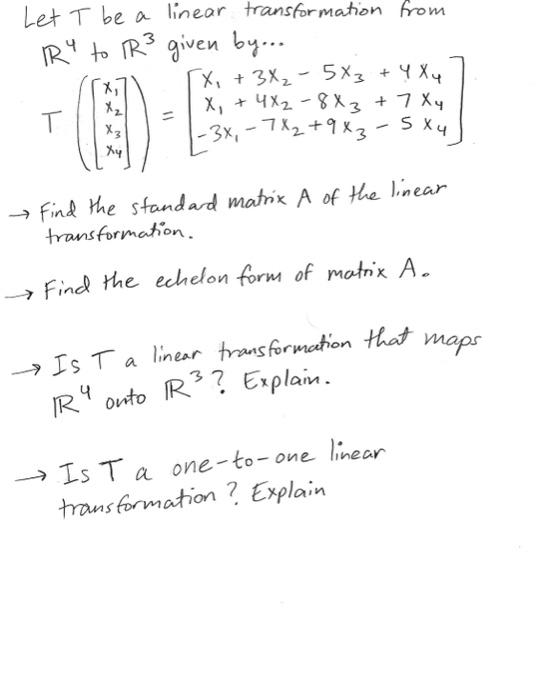 Let T be a linear transformation from
ℝ⁴ to ℝ³ given by...
T([x₁ x₂ x₃ x₄]) = [x₁ + 3x₂ - 5x₃ + 4x₄
x₁ + 4x₂ - 8x₃ + 7x₄
-3x₁ - 7x₂ + 9x₃ - 5x₄]
→ Find the standard matrix A of the linear
transformation.
→ Find the echelon form of matrix A.
→ Is T a linear transformation that maps
ℝ⁴ onto ℝ³? Explain.
→ Is T a one-to-one linear
transformation? Explain